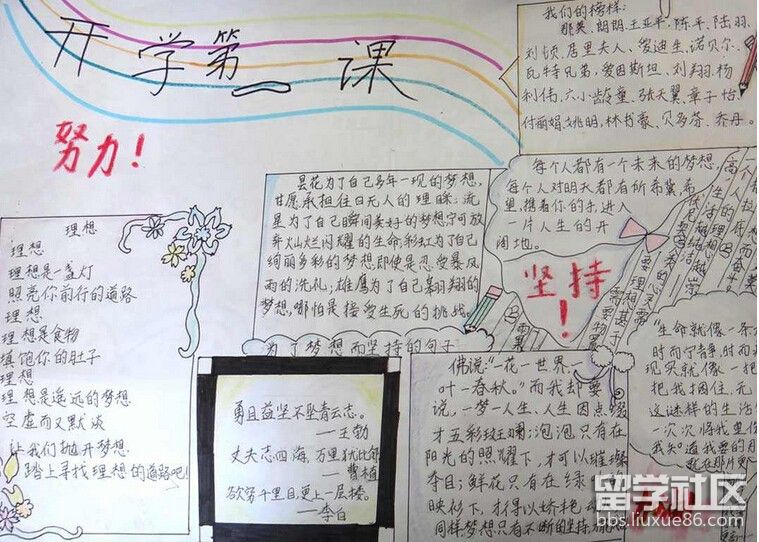 开学第一课
努力!
我们的榜样:
那英、朗朗、王亚平、陈平、陆羽、
刘顿、居里夫人、爱迪生、诺贝尔、
瓦特兄弟、爱因斯坦、刘翔、杨
利伟、六小龄童、张天翼、章子怡、
付丽娟、姚明、林书豪、贝多芬、乔丹。
昙花为了自己多年一现的梦想,
甘愿承担往日无人的理睬;流
星为了自己瞬间美好的梦想宁可放
弃火山烂闪耀的生命;彩虹为了自己
绚丽多彩的梦想即使是忍受暴风
雨的洗礼;雄鹰为了自己翱翔的
梦想,哪怕是接受生死的挑战。
为了梦想而坚持的句子
每个人都有一个未来的梦想,
每个人对明天都有所希冀,
里,携着你的手,进入
一片人生的开
阔地。
坚持!
理想
理想
理想是一盏灯
照亮你前行的道路
理想
理想是食物
填饱你的肚子
理想
理想是遥远的梦想
空虚而又默谈
让我们抛开梦想
踏上寻找理想的道路吧!
勇且益坚不坠青云志。
——王勃
丈夫志四海,万里犹比邻
——曹植
欲穷千里目,更上一层楼。
——李白
佛说:"一花一世界,一
叶一春秋。"而我却要
说,一梦一人生,人生因点缀
才五彩斑斓;泡泡只有在
阳光的照耀下,才可以璀璨
夺目;鲜花只有在绿
映衬下,才得以娇艳
同样,梦想只有不断的坚持,
"生命就像一条
时而宁静,时而
现实就像一把
把我捆住,无
这谜样的生活
一次次将我重伤
我知道我要的
就在那片更
留学社区
bbs.liuxue86.com